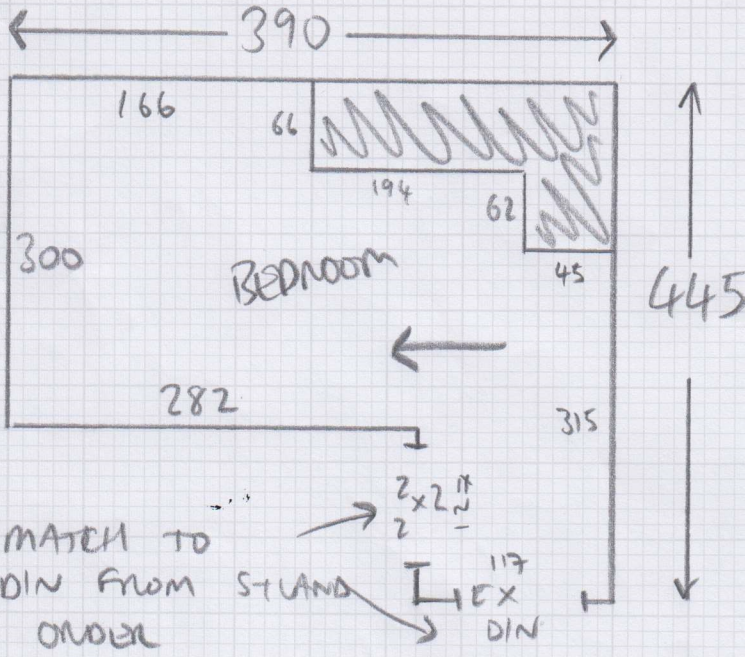 390
166
66
194
62
45
300
BEDROOM
445
282
315
2
x2
2
MATCH TO
DIN FROM
ORDER
117
EX
DIN